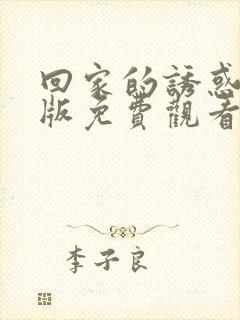 回家的誘惑
版免費觀看
李子良